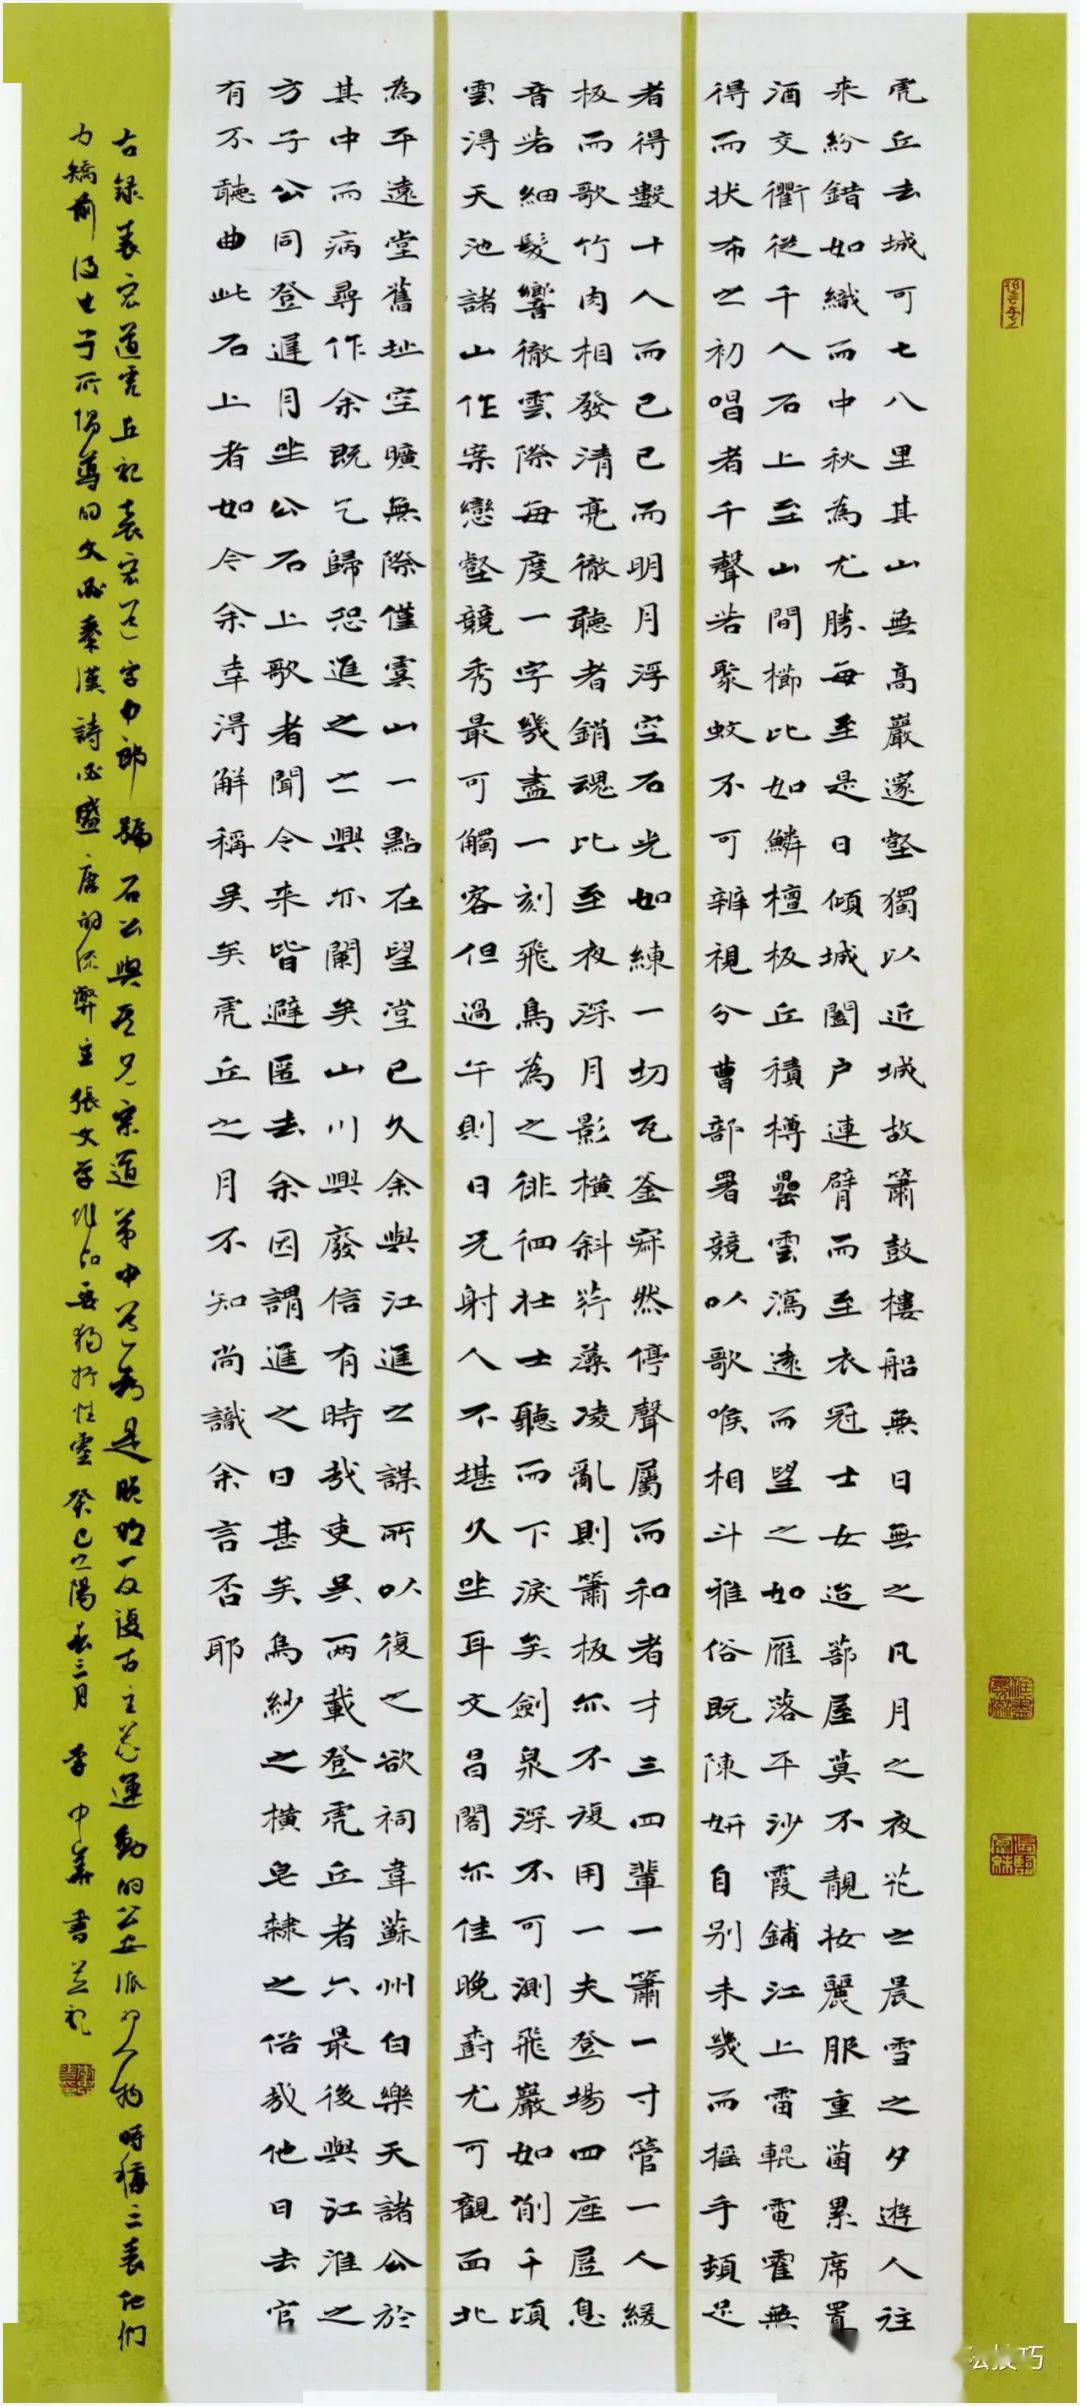 虎丘去城可七八里其山無高巖邃壑獨以近城故簫鼓樓船無日無之凡月之夜花之晨雪之夕遊人往
来紛錯如織而中秋為尤勝每至是日傾城闔户連臂而至衣冠士女迨蔀屋莫不靚妝麗服重茵累席置
酒交衢從千人石上至山間櫛比如鱗檀板丘積樽罍雲瀉遠而望之如雁落平沙霞鋪江上雷輥電霍無
得而状布之初唱者千聲若聚蚊不可辨視分曹部署競以歌喉相斗雅俗既陳妍自别未幾而摇手頓足
者得數十人而已已而明月浮空石光如練一切瓦釜寂然停聲屬而和者才三四輩一簫一寸管一人緩
板而歌竹肉相發清亮徹聽者銷魂比至夜深月影横斜荇藻凌亂則簫板亦不復用一夫登場四座屏息
音若細髮響徹雲際每度一字幾盡一刻飛鳥為之徘徊壮士聽而下淚矣劍泉深不可測飛巖如削千頃
雲得天池諸山作案巒壑競秀最可觴客但過午則日光射人不堪久坐耳文昌閣亦佳晚樹尤可觀面北
為平遠堂舊址空曠無際僅虞山一點在望堂已久余與江進之謀所以復之欲祠韋蘇州白樂天諸公於
其中而病尋作余既乞歸恐進之之興亦闌矣山川興廢信有時哉吏吴兩載登虎丘者六最後與江淮之
方子公同登遲月坐公石上歌者聞令来皆避匿去余因謂進之曰甚矣烏紗之横皂隸之俗哉他日去官
有不聽曲此石上者如今余幸得解稱吴矣虎丘之月不知尚識余言否耶
右錄袁宏道虎丘記袁宏道字中郎號石公與其兄宗道弟中道為是晚明反復古主義運動的公安派代表人物時稱三袁他們
力矯前後七子所倡導的文必秦漢詩必盛唐的流弊主張文章作品要獨抒性靈 癸巳之陽春三月 李中華書並記
技巧